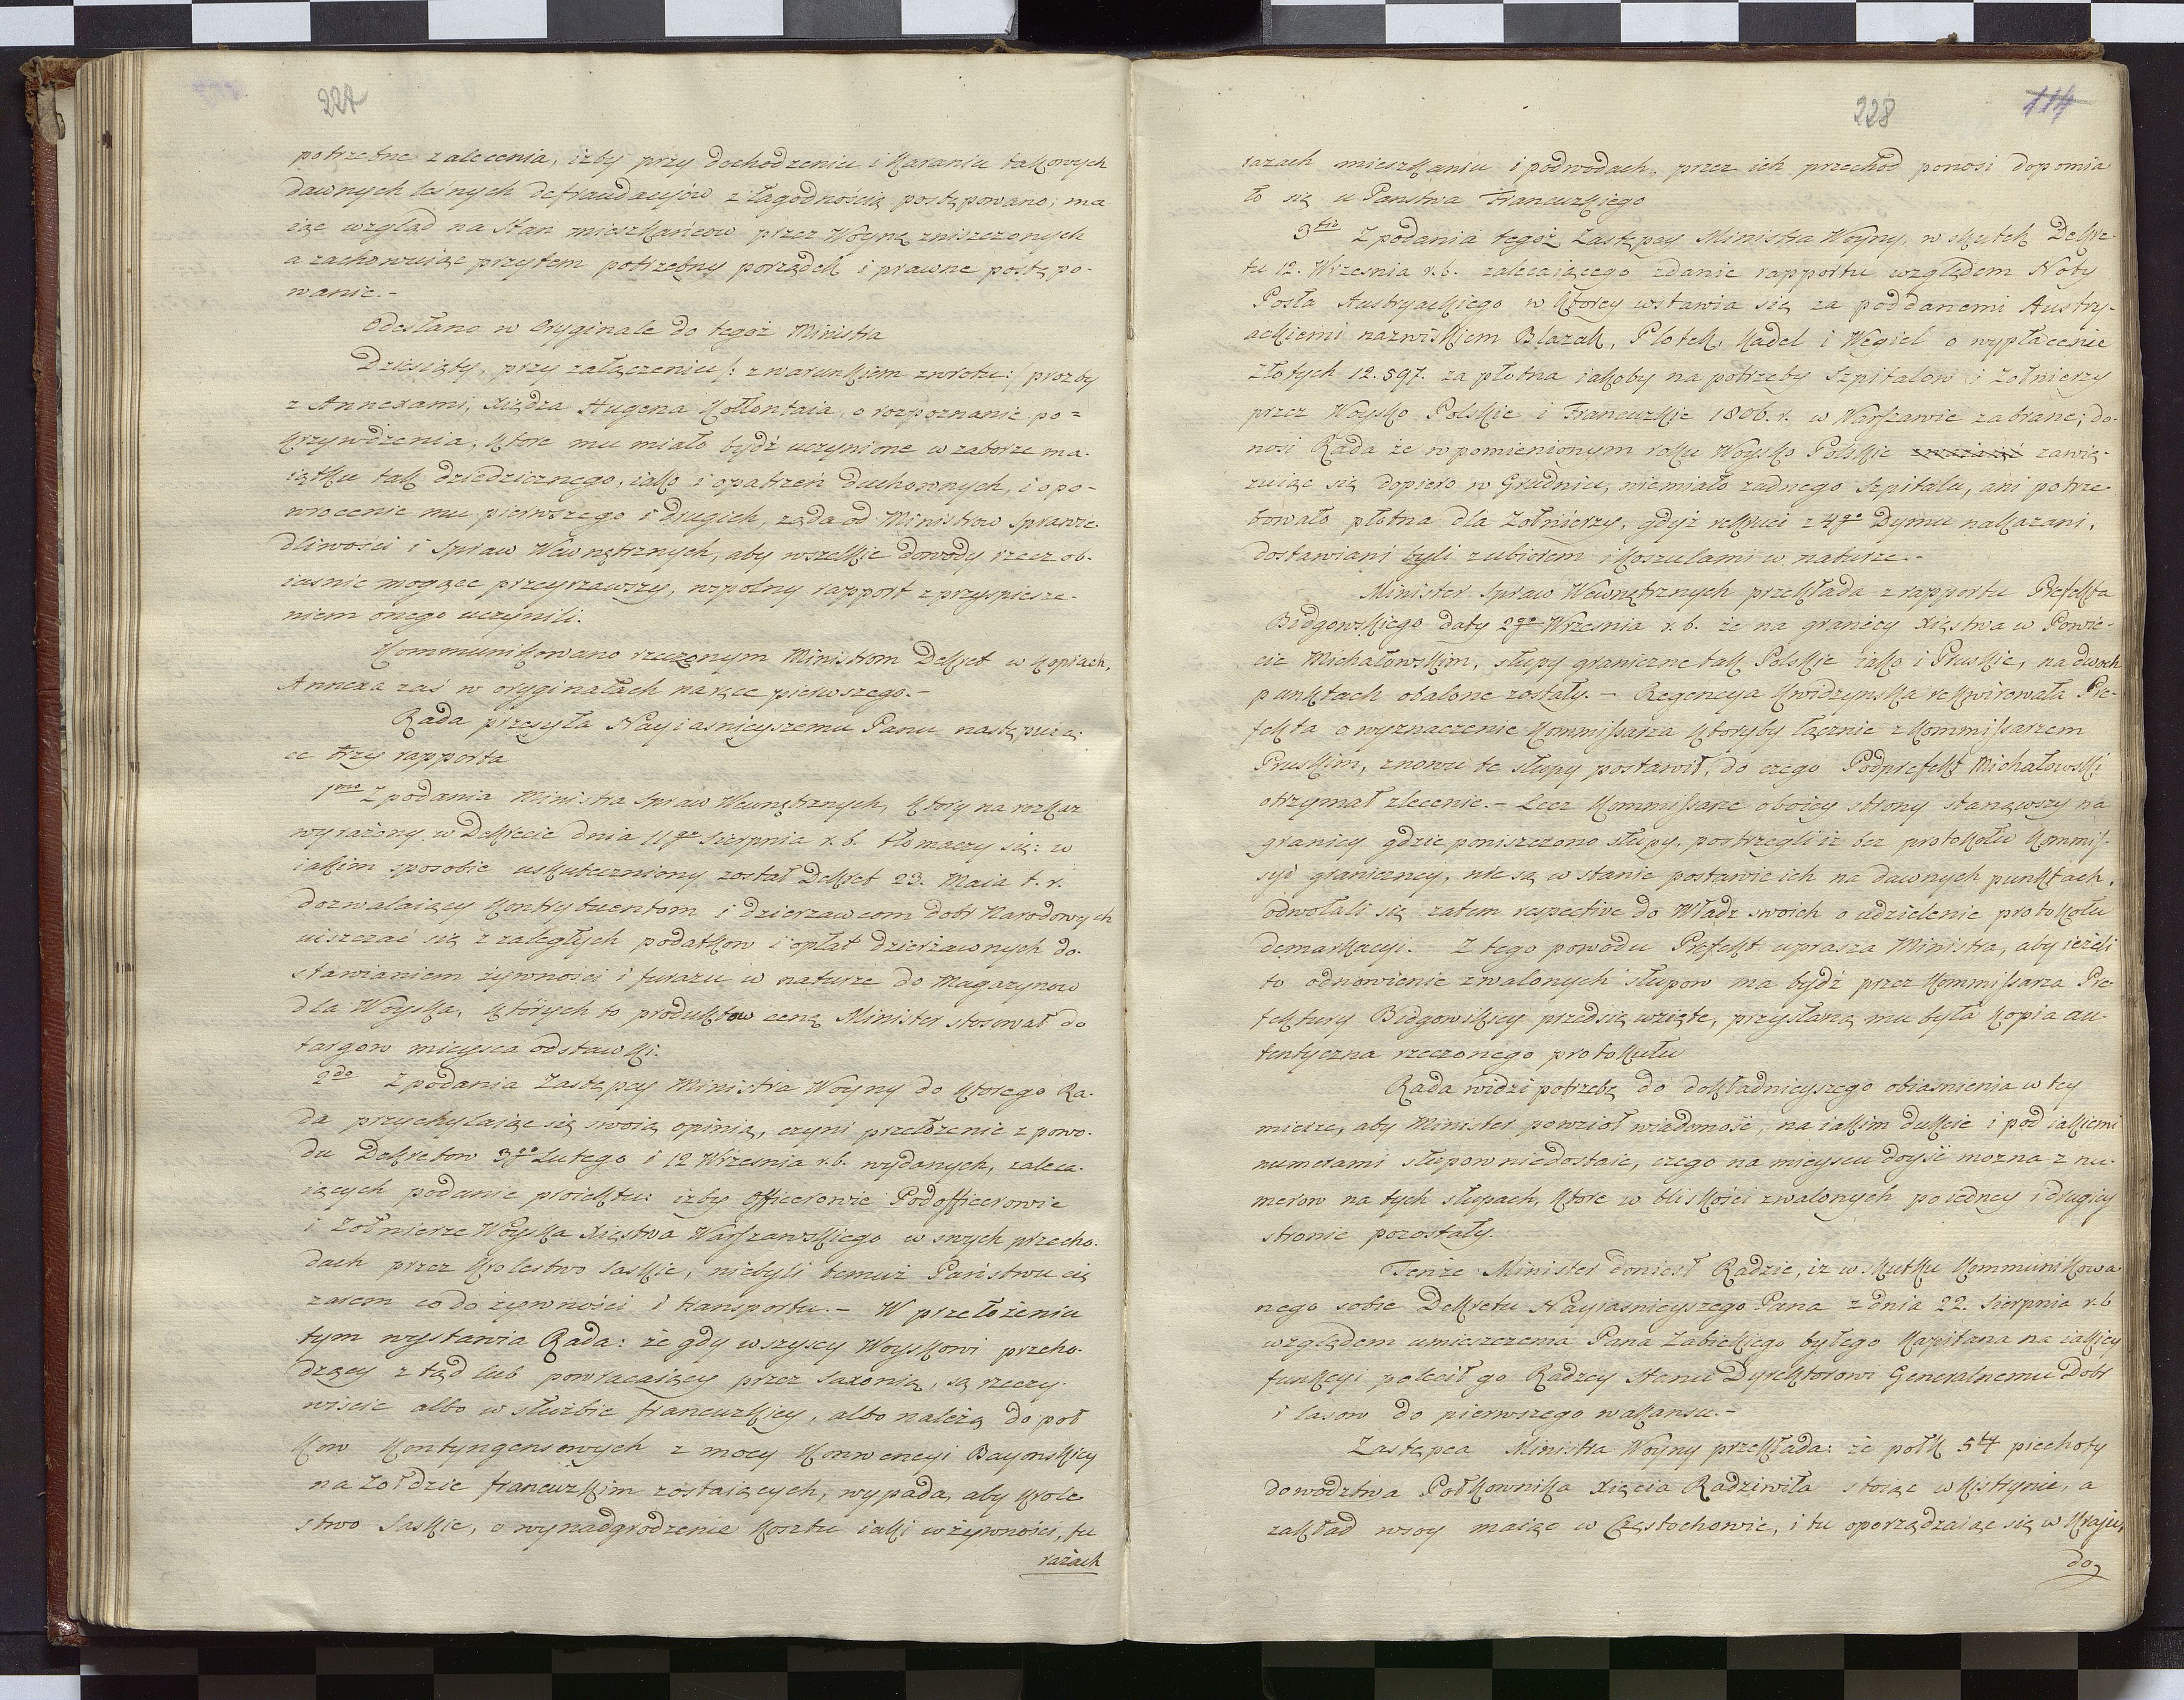 227
potrzebne zalecenia, izby przy dochodzeniu i karaniu takowych
dawnych leśnych defraudacyiów z łagodnością postępowano, ma
iąc wzgląd na stan mieszkańcow przez Woynę zniszczonych
a zachowuiąc przytem potrzebny porządek i prawne postępo-
wanie.-
Odesłano w Oryginale do tegoż Ministra
Dziesiąty, przy załączeniu /: z warunkiem zwrotu :/ prozby
z Annexami, Xiędza Hugona Kołłontaia, o rozpoznanie po=
krzywdzenia, ktore mu miało bydź uczynione w zaborze ma-
iątku tak dziedzicznego, iako i opatrzeń duchownych, i o po-
wrocenie mu pierwszego i drugich, ząda od Ministrow Sprawie-
dliwości i Spraw Wewnętrznych, aby wszelkie dowody rzecz ob-
iasnic mogące przeyrzawszy, wspolny rapport z przyspiesze-
niem onego uczynili.
Kommunikowano rzeczonym Ministrom Dekret w kopiach,
Annexa zaś w oryginałach na ręce pierwszego.-
Rada przesyła Nayiasnieyszemu Panu następuią-
ce trzy rapporta
1mo Z podania Ministra Spraw Wewnętrznych, ktory na rozkaz
wyrażony w Dekrecie dnia 11go Sierpnia r. b. tłomaczy się: w
iakim sposobie uskuteczniony został Dekret 23. Maia t. r.
dozwalaiący kontrybuentom i dzierzawcom dobr Narodowych
uiszczać się z zaległych podatkow i opłat dzierżawnych do-
stawianiem żywności i furazu w naturze do Magazynow
dla Woyska, których to produktow cenę Minister stosował do
targow mieysca odstawki.
2do Z podania Zastępcy Ministra Woyny do ktorego Ra-
da przychylaiąc się swoią opinią, czyni przełożenie z powo-
du Dekretow 3go Lutego i 12 Wrzesnia r. b. wydanych, zaleca-
iących podanie proiektu: izby Officerowie Podofficerowie
i Zołnierze Woyska Xięstwa Warszawskiego w swych przecho-
dach przez Krolestwo Saskie, niebyli temuż Państwu cię
zarem co do żywności i transportu.- W przełożeniu
tym wystawia Rada: że gdy wszyscy Woyskowi przecho-
dzący z tąd lub powracaiący przez Saxonią, są rzeczy-
wiscie albo w służbie francuzkiey, albo należą do poł
kow kontyngensowych z mocy Konwencyi Bayonskiey
na żołdzie francuzkim zostaiących, wypada, aby Krole
stwo Saskie, o wynadgrodzenie kosztu iaki w żywności, fu
razach
228
114
razach mieszkaniu i podwodach, przez ich przechod ponosi dopomia
ło się u Panstwa Francuzkiego
3tio Z podania tegoż Zastępcy Ministra Woyny, w skutek Dekre-
tu 12. Wrzesnia r. b. zalecaiącego zdanie rapportu względem Noty
Posła Austryackiego w ktorey wstawia się za poddanemi Austry-
ackiemi nazwiskiem Blazak, Plotek, Kadel i Węgiel o wypłacenie
złotych 12.597. za płotna iakoby na potrzeby Szpitalow i Zołnierzy
przez Woysko Polskie i Francuzkie 1806. r. w Warszawie zabrane; do-
nosi Rada że w pomienionym roku Woysko Polskie zawią-
zuiąc się dopiero w Grudniu, niemiało zadnego Szpitalu, ani potrze
bowało płotna dla Zołnierzy, gdyż rekruci z 4go Dymu nakazani,
dostawiani byli z ubiorem i koszulami w naturze.-
Minister Spraw Wewnętrznych przekłada z rapportu Prefekta
Bidgowskiego daty 2go Wrzesnia r. b. że na granicy Xięstwa w Powie-
cie Michałowskim, słupy graniczne tak Polskie iako i Pruskie, na dwoch
punktach obalone zostały.- Regencya Kwidzynska rekwirowała Pre-
fekta o wyznaczenie Kommissarza ktoryby łącznie z Kommissarzem
Pruskim, znowu te słupy postawił, do czego Podprefekt Michałowski
otrzymał zlecenie.- Lecz Kommissarze oboiey strony stanąwszy na
granicy gdzie poniszczono słupy, postrzegli iż bez protokołu Kommis-
syi graniczney, nie są w stanie postawic ich na dawnych punktach,
odwołali się zatem respective do Władz swoich o udzielenie protokołu
demarkacyi. Z tego powodu Prefekt uprasza Ministra, aby ieżeli
to odnowienie zwalonych słupow ma bydź przez Kommissarza Pre-
fektury Bidgowskiey przedsięwzięte, przysłaną mu była kopia au-
tentyczna rzeczonego protokułu
Rada widzi potrzebę do dokładnieyszego obiasnienia w tey
mierze, aby Minister powzioł wiadomość, na iakim dukcie i pod iakiemi
numerami słupow niedostaie, czego na mieyscu doyść mozna z nu-
merow na tych słupach, ktore w bliskości zwalonych po iedney i drugiey
stronie pozostały.
Tenze Minister doniosł Radzie, iz w skutku Kommunikowa
nego sobie Dekretu Nayiasnieyszego Pana z dnia 22. Sierpnia r. b
względem umieszczenia Pana Zabickiego byłego Kapitana na iakiey
funkcyi polecił go Radzcy Stanu Dyrektorowi Generalnemu Dobr
i Lasow do pierwszego wakansu.-
Zastępca Ministra Woyny przekłada: że połk 5ty piechoty
dowodztwa Połkownika Xięcia Radziwiła stoiąc w Kistrynie, a
zakład swoy maiąc w Częstochowie, i tu oporządzaiąc się w kraiu,
do